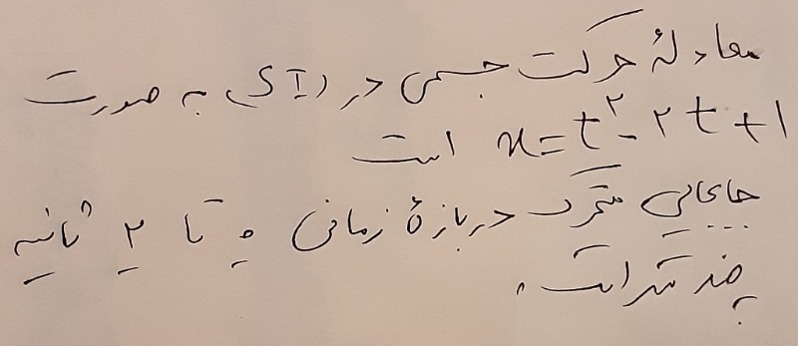 معادلهٔ حرکت جسمی در SI به صورت
x=t²-۲t+1 است
جابجایی متحرک در بازهٔ زمانی ۰ تا ۲ ثانیه
چند متر است.